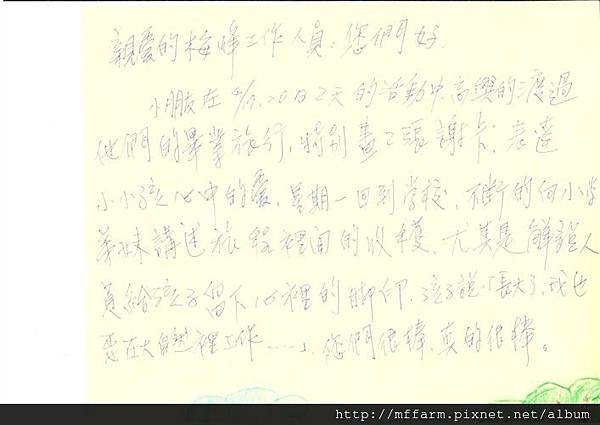 親愛的梅峰工作人員：您們好
小朋友在4/19.20日2天的活動中高興的渡過
他們的畢業旅行，特別畫2張謝卡；表達
小小孩心中的愛，星期一回到學校，不斷的向小學
弟妹講述旅程裡面的收穫，尤其是解說人
員給孩子留下心裡的腳印，孩子說「長大了，我也
要在大自然裡工作……」，您們很棒，真的很棒。
http://mffarm.pixnet.net/album